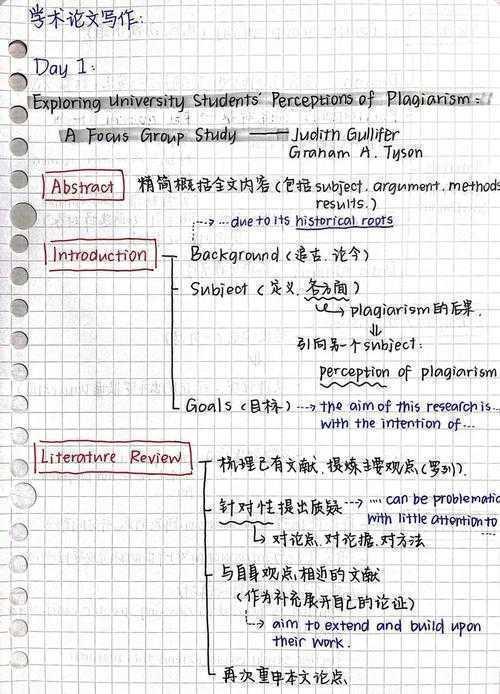 学术论文写作:
Day 1:
Exploring University Students' Perceptions of Plagiarism:
A Focus Group Study —— Judith Gullifer
Graham A. Tyson
Abstract 精简概括全文内容(包括subject. argument. methods
results.)
⇢ ...due to its historical roots
Introduction Background (追古. 论今)
Subject (定义. 各方面)
↳ plagiarism的后果.
⇓
引向另一个subject:
perception of plagiarism
Goals (目标) ⇢ the aim of this research is...
with the intention of ...
Literature Review 梳理已有文献. 提炼主要观点(罗列).
针对性提出质疑 ⇢ ... can be problematic
with little attention to
↳ 对论点. 对论据. 对方法
与自身观点相近的文献
(作为补充展开自己的论证)
↳ aim to extend and build upon
their work.
再次重申本文论点.